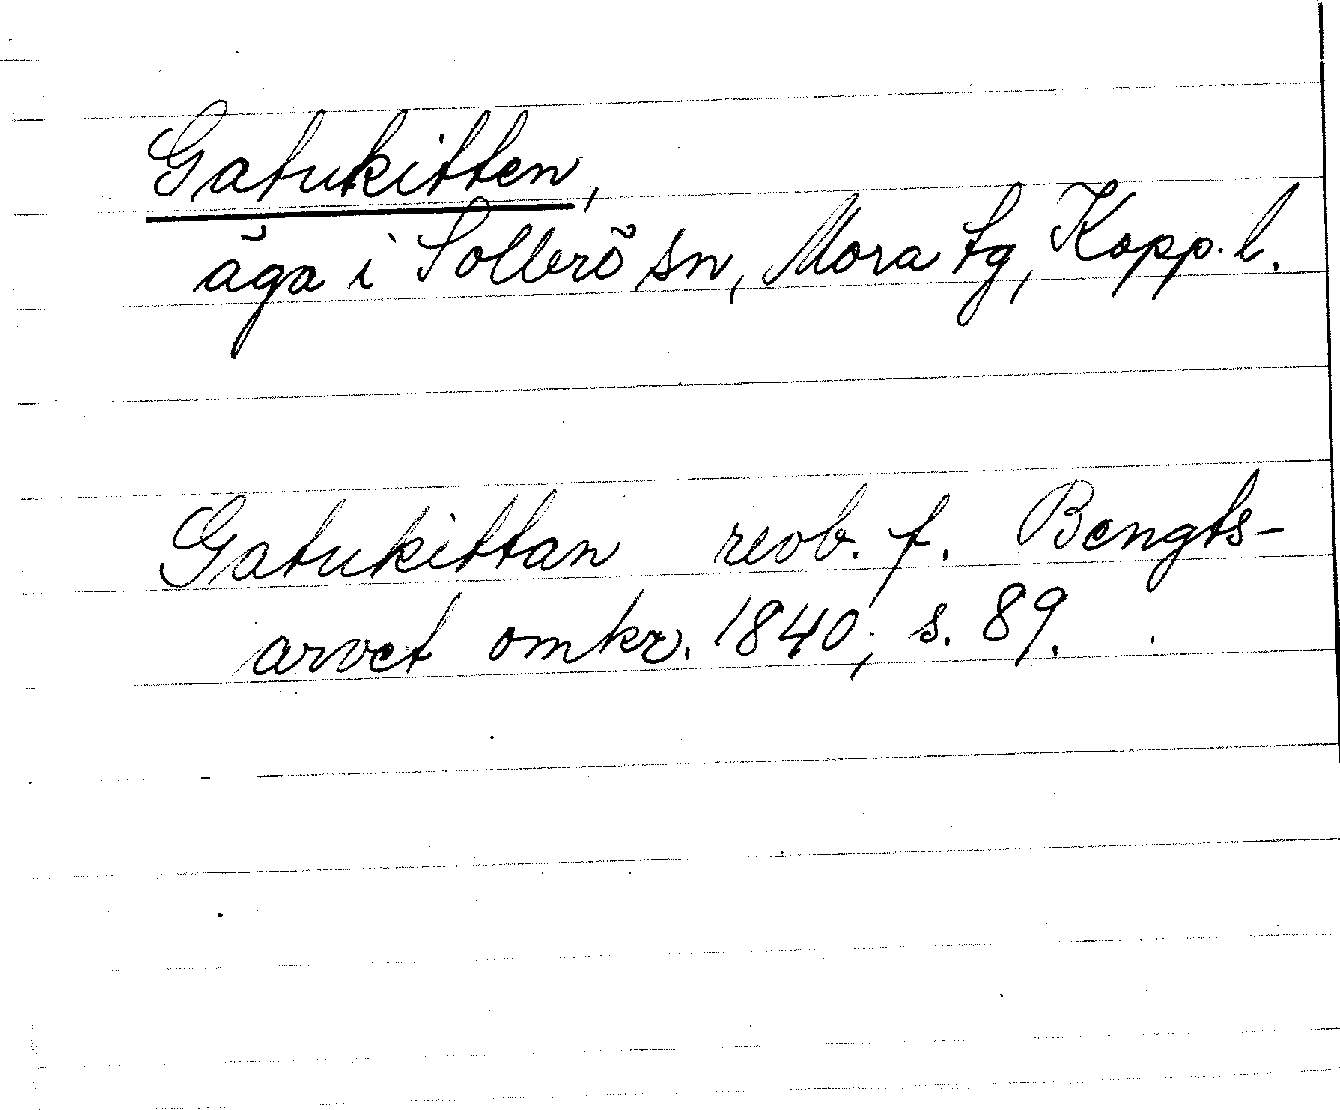 Gatukitten,
äga i Sollerö sn, Mora tg, Kopp. l.
Gatukittan revb. f. Bengts-
arvet omkr. 1840; s. 89.